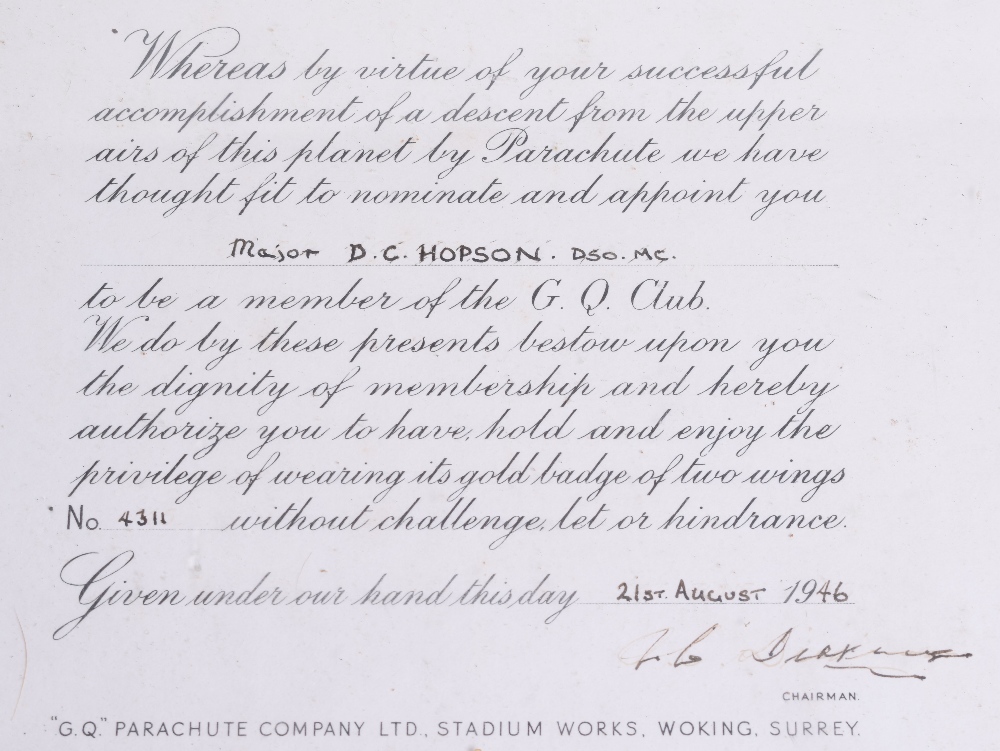 Whereas by virtue of your successful
accomplishment of a descent from the upper
airs of this planet by Parachute we have
thought fit to nominate and appoint you
Major D.C. HOPSON. DSO. MC.
to be a member of the G. Q. Club.
We do by these presents bestow upon you
the dignity of membership and hereby
authorize you to have, hold and enjoy the
privilege of wearing its gold badge of two wings
No. 4311 without challenge, let or hindrance.
Given under our hand this day 21ST. AUGUST 1946
CHAIRMAN.
"G.Q." PARACHUTE COMPANY LTD., STADIUM WORKS, WOKING, SURREY.